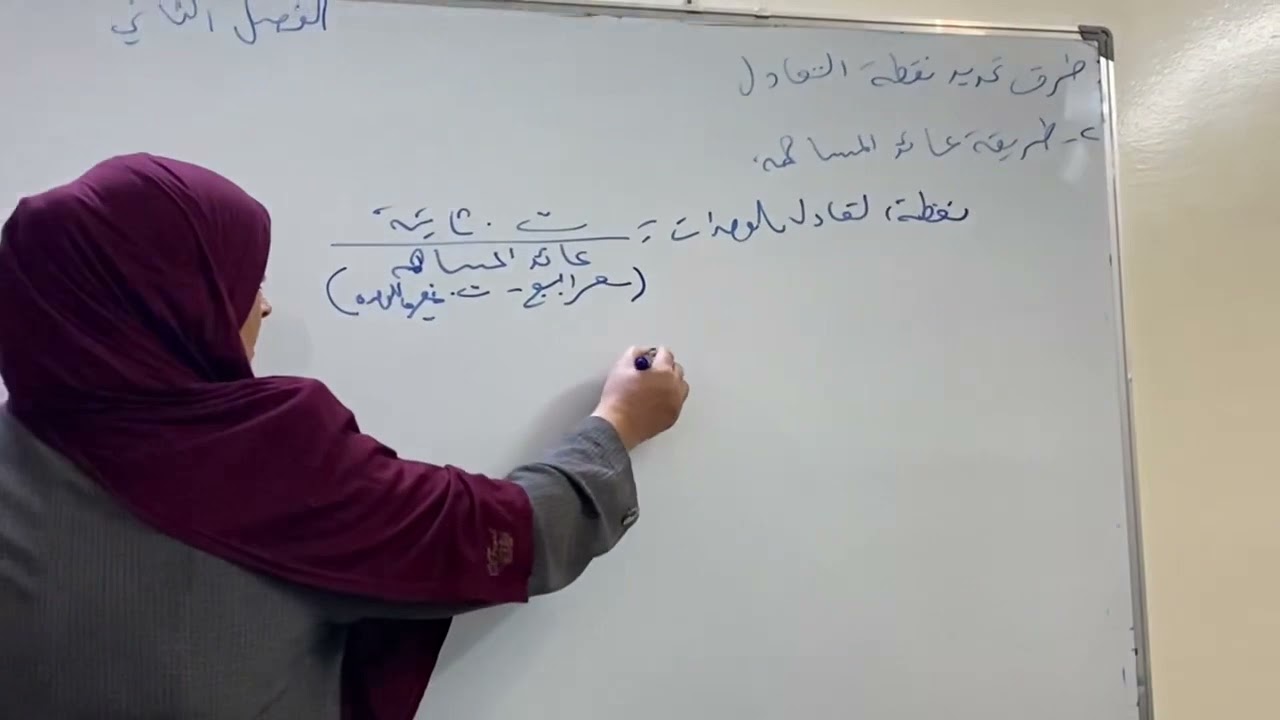 الفصل الثاني
طرق تحديد نقطة التعادل
٢- طريقة عائد المساهمه.
نقطة التعادل بالوحدات = ت. ثابتة
عائد المساهمه
(سعر البيع - ت. متغيره للوحده)